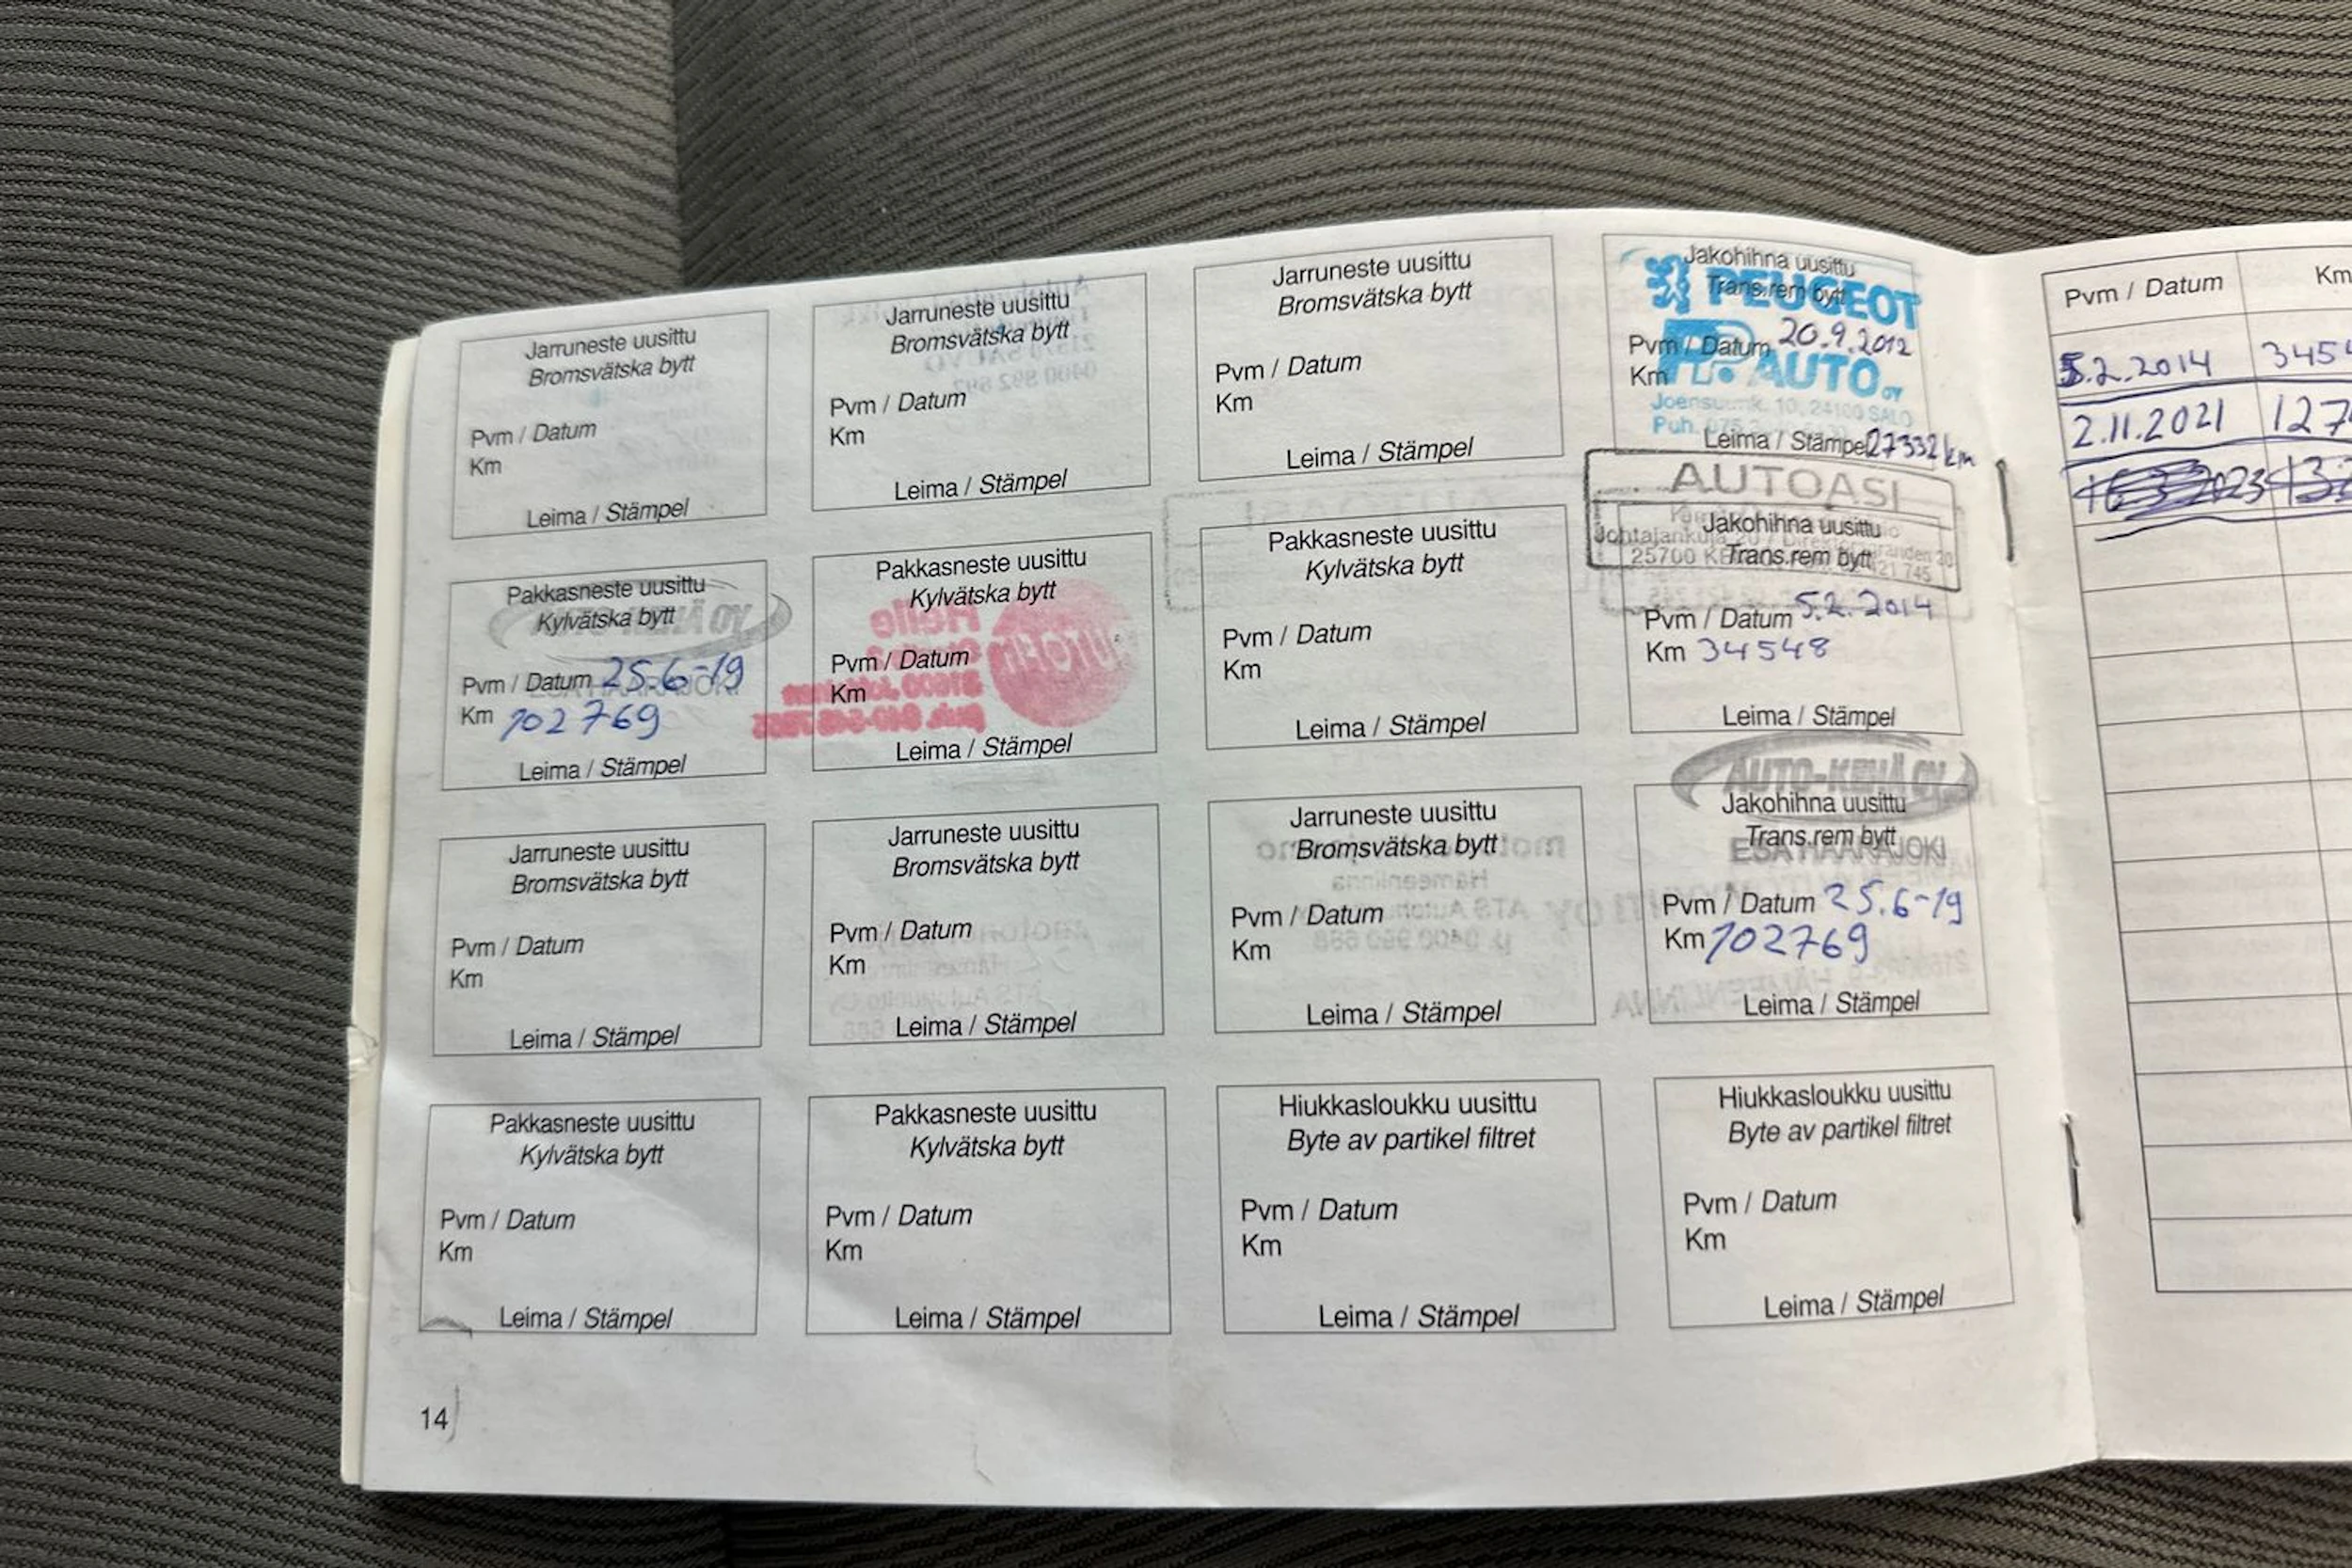 Jarruneste uusittu
Bromsvätska bytt
Pvm / Datum
Km
Leima / Stämpel
Jarruneste uusittu
Bromsvätska bytt
Pvm / Datum
Km
Leima / Stämpel
Jarruneste uusittu
Bromsvätska bytt
Pvm / Datum
Km
Leima / Stämpel
Jakohihna uusittu
PEUGEOT
Trans.rem bytt
Pvm / Datum 20.9.2012
Km
AUTO OY
Joensuunk. 10, 24100 SALO
Puh.
Leima / Stämpel 27332 km
Pakkasneste uusittu
Kylvätska bytt
Pvm / Datum 25.6-19
Km 102769
Leima / Stämpel
Pakkasneste uusittu
Kylvätska bytt
Pvm / Datum
Km
Leima / Stämpel
Pakkasneste uusittu
Kylvätska bytt
Pvm / Datum
Km
Leima / Stämpel
AUTOASI
Jakohihna uusittu
Johtajankuja 20
Trans.rem bytt
25700
Pvm / Datum 5.2.2014
Km 34548
Leima / Stämpel
Jarruneste uusittu
Bromsvätska bytt
Pvm / Datum
Km
Leima / Stämpel
Jarruneste uusittu
Bromsvätska bytt
Pvm / Datum
Km
Leima / Stämpel
Jarruneste uusittu
Bromsvätska bytt
Pvm / Datum
Km
Leima / Stämpel
AUTO-KEHÄ OY
Jakohihna uusittu
Trans.rem bytt
ESA HAARAJOKI
Pvm / Datum 25.6-19
Km 102769
Leima / Stämpel
Pakkasneste uusittu
Kylvätska bytt
Pvm / Datum
Km
Leima / Stämpel
Pakkasneste uusittu
Kylvätska bytt
Pvm / Datum
Km
Leima / Stämpel
Hiukkasloukku uusittu
Byte av partikel filtret
Pvm / Datum
Km
Leima / Stämpel
Hiukkasloukku uusittu
Byte av partikel filtret
Pvm / Datum
Km
Leima / Stämpel
14
Pvm / Datum Km
5.2.2014 345
2.11.2021 127